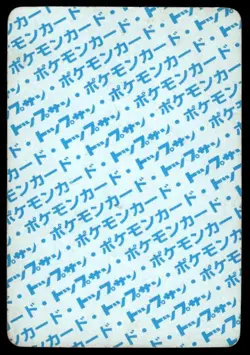 ポケモンカード・
ポケモンカード・トップサン
トップサン・ポケモンカード・
ポケモンカード・トップサン・
・トップサン・ポケモンカード
ポケモンカード・トップサン・
トップサン・ポケモンカード・
ポケモンカード・トップサン
・トップサン・ポケモンカード
ポケモンカード・トップサン・
トップサン・ポケモンカード・
ポケモンカード・トップサン
トップサン・ポケモンカード
ポケモンカード・トップサン
ポケモンカード・